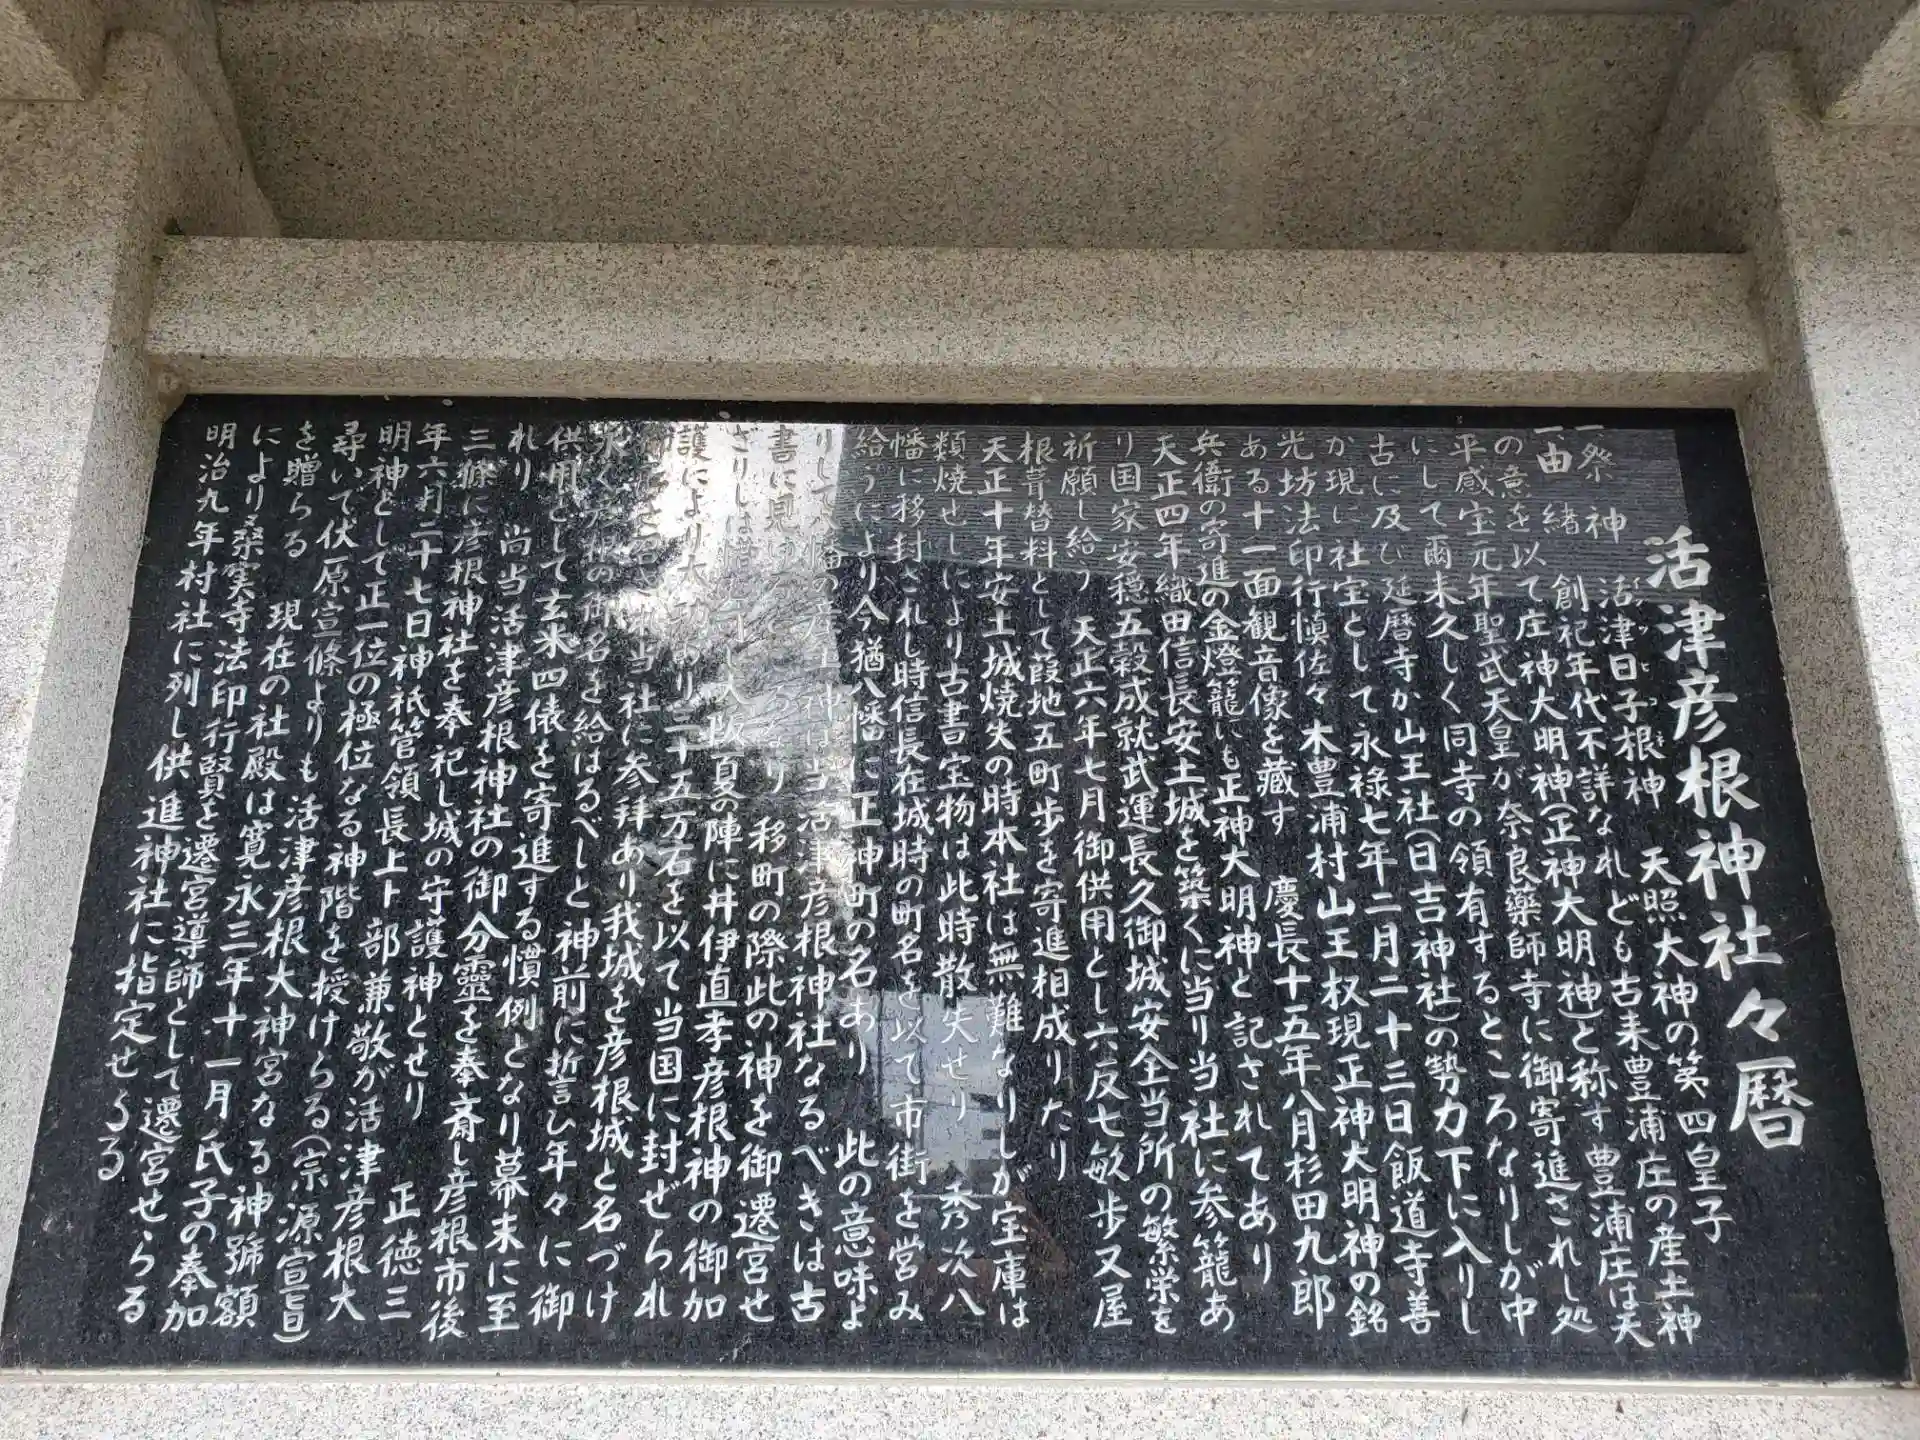 活津彦根神社々暦
一祭神 活津日子根神 天照大神の第四皇子
一由緒 創祀年代不詳なれども古来豊浦庄の産土神
の意を以て庄神大明神(正神大明神)と称す豊浦庄は天
平感宝元年聖武天皇が奈良薬師寺に御寄進されし処
にして爾来久しく同寺の領有するところなりしが中
古に及び延暦寺か山王社(日吉神社)の勢力下に入りし
か現に社宝として永禄七年二月二十三日飯道寺善
光坊法印行慎佐々木豊浦村山王权現正神大明神の銘
ある十一面観音像を蔵す 慶長十五年八月杉田九郎
兵衛の寄進の金燈籠にも正神大明神と記されてあり
天正四年織田信長安土城を築くに当り当社に参籠あ
り国家安穏五穀成就武運長久御城安全当所の繁栄を
祈願し給う 天正六年七月御供用とし六反七畝歩又屋
根葺替料として葭地五町歩を寄進相成りたり
天正十年安土城焼失の時本社は無難なりしが宝庫は
類焼せしにより古書宝物は此時散失せり 秀次八
幡に移封されし時信長在城時の町名を以て市街を営み
給うにより今猶八幡に正神町の名あり 此の意味よ
りして八幡の産土神は当活津彦根神社なるべきは古
書に見ゆるところなり 移町の際此の神を御遷宮せ
ざりしは惜 大阪夏の陣に井伊直孝彦根神の御加
護により大 あり三十五万石を以て当国に封ぜられ
当社に参拝あり我城を彦根城と名づけ
永く彦根の御名を給はるべしと神前に誓ひ年々に御
供用として玄米四俵を寄進する慣例となり幕末に至
れり 尚当活津彦根神社の御分靈を奉斎し彦根市後
三條に彦根神社を奉祀し城の守護神とせり 正徳三
年六月二十七日神祇管領長上卜部兼敬が活津彦根大
明神として正一位の極位なる神階を授けらる(宗源宣旨)
尋いで伏原宣條よりも活津彦根大神宮なる神號額
を贈らる 現在の社殿は寛永三年十一月氏子の奉加
により桑実寺法印行賢を遷宮導師として遷宮せらる
明治九年村社に列し供進神社に指定せらる